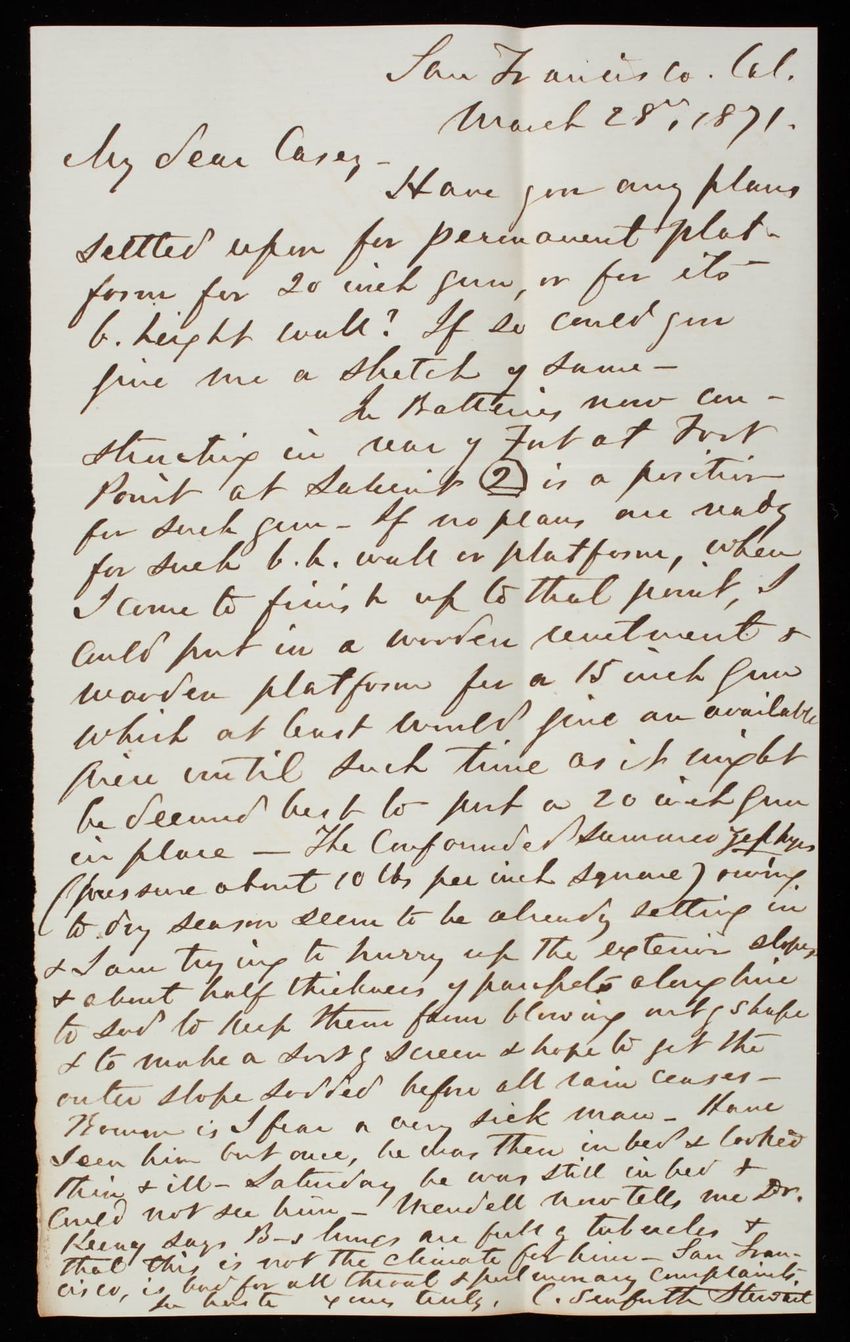 San Francisco. Cal.
March 28th, 1871.
My dear Casey -
Have you any plans
settled upon for permanent plat-
form for 20 inch gun, or for its
b. height wall? If so could you
give me a sketch of same -
In Batteries now con-
structing in rear of Fort at Fort
Point at Salient 2 is a position
for such gun - If no plans are ready
for such b.h. wall or platform, when
I come to finish up to that point, I
could put in a wooden revetment &
wooden platform for a 15 inch gun
which at least would give an available
piece until such time as it might
be deemed best to put a 20 inch gun
in place - The Confounded summer zephyrs
(pressure about 10 lbs per inch square) owing
to dry season seem to be already setting in
& I am trying to hurry up the exterior slopes
& about half thickness of parapets along line
to sod to keep them from blowing out of shape
& to make a sort of screen & hope to get the
outer slope sodded before all rain ceases -
Bowman is I fear a very sick man - Have
seen him but once, he was then in bed & looked
thin & ill - Saturday he was still in bed &
could not see him - Mendell now tells me Dr.
Keeny says B-s lungs are full of tubercles &
that this is not the climate for him - San Fran-
cisco, is bad for all throat & pulmonary complaints.
In haste yours truly, C. Seaforth Stewart